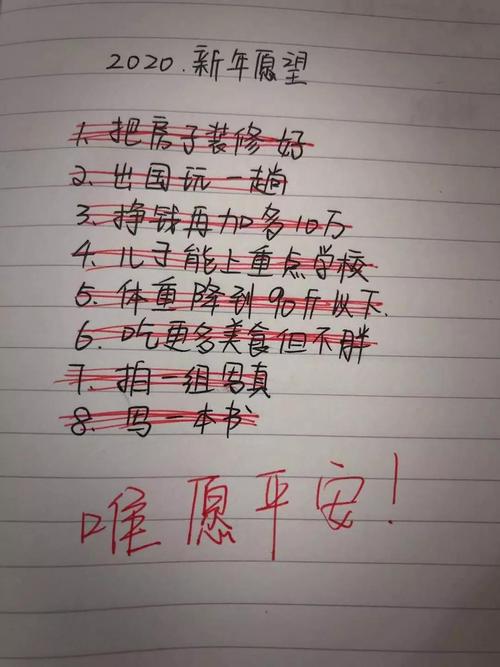 2020.新年愿望
1.把房子装修好
2.出国玩一趟
3.挣钱再加多10万
4.儿子能上重点学校
5.体重降到90斤以下.
6.吃更多美食但不胖
7.拍一组写真
8.写一本书
唯愿平安!